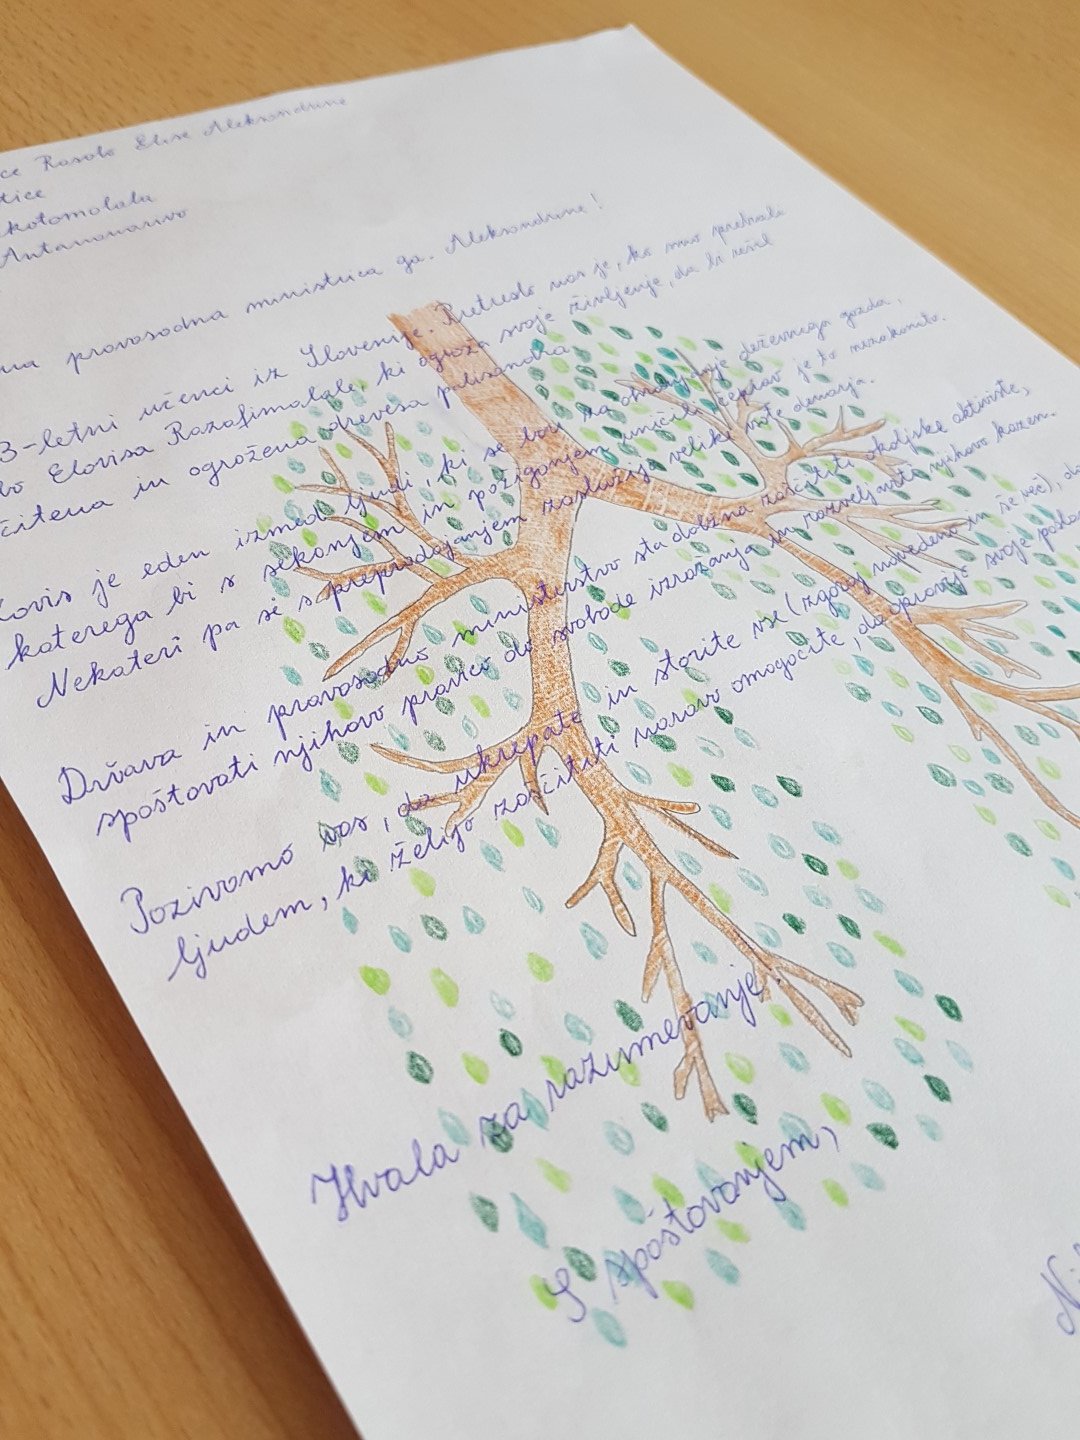 ce Rasolo Elise Aleksandrine
tice
kotomalala
Antananarivo
na pravosodna ministrica ga. Aleksandrine!
3-letni učenci iz Slovenije. Pretreslo nas je, ko smo prebrali
o Clovisa Razafimalale, ki ogroža svoje življenje, da bi rešil
čitena in ogrožena drevesa palisandra.
lovis je eden izmed ljudi, ki se bori za ohranjanje deževnega gozda,
katerega bi s sekanjem in požiganjem uničili čeprav je to nezakonito.
Nekateri pa si s preprodajanjem zaslužijo velike vsote denarja.
Država in pravosodno ministerstvo sta dolžna zaščititi okoljske aktiviste,
spoštovati njihovo pravico do svobode izražanja in razveljaviti njihovo kazen.
Pozivamo vas, da ukrepate in storite vse (zgoraj navedeno in še več), da
ljudem, ki želijo zaščititi naravo omogočite, da opravijo svoje posla
Hvala za razumevanje.
S spoštovanjem,